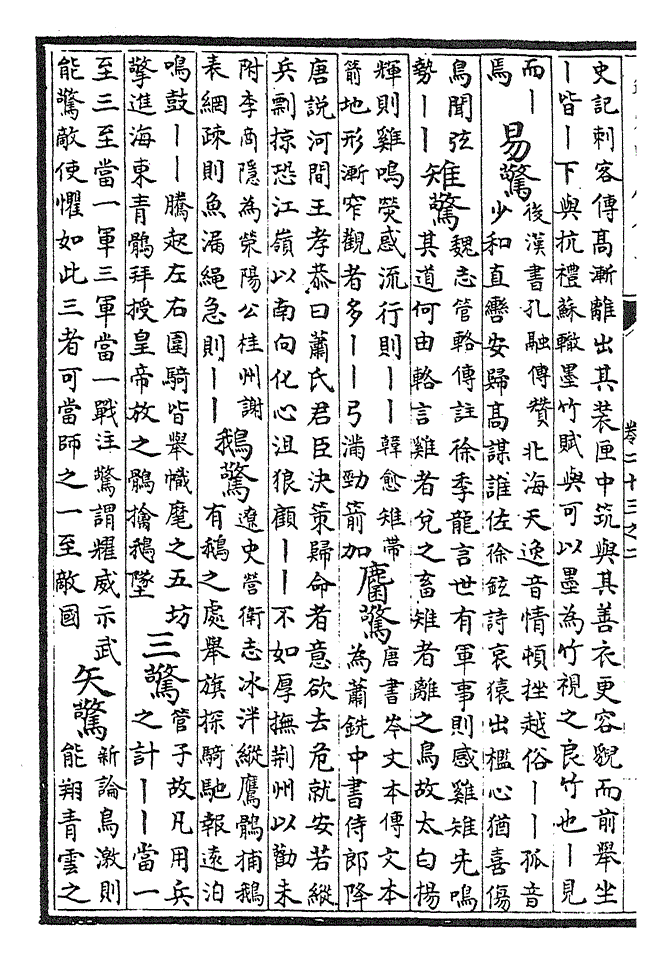 史記刺客傳髙漸離出其装匣中筑與其善衣更容貎而前舉坐
丨皆丨下與抗禮蘇轍墨竹賦與可以墨為竹視之良竹也丨見
而丨
焉
易驚
後漢書孔融傳贊北海天逸音情頓挫越俗丨丨孤音
少和直轡安歸髙謀誰佐徐鉉詩哀猿出檻心猶喜傷
鳥聞弦
勢丨丨
雉驚
魏志管輅傳註徐季龍言世有軍事則感雞雉先鳴
其道何由輅言雞者兌之畜雉者離之鳥故太白揚
輝則雞鳴熒惑流行則丨丨韓愈雉帶
箭地形漸窄觀者多丨丨弓滿勁箭加
麕驚
唐書岑文本傳文本
為蕭銑中書侍郎降
唐說河間王孝恭曰蕭氏君臣決策歸命者意欲去危就安若縱
兵剽掠恐江嶺以南向化心沮狼顧丨丨不如厚撫荆州以勸未
附李商隱為滎陽公桂州謝
表網疎則魚漏繩急則丨丨
鵝驚
遼史營衛志冰泮縱鷹鶻捕鵝
有鵝之處舉旗探騎馳報逺泊
鳴鼓丨丨騰起左右圍騎皆舉幟麾之五坊
擎進海東青鶻拜授皇帝放之鶻擒鵝墜
三驚
管子故凡用兵
之計丨丨當一
至三至當一軍三軍當一戰注驚謂耀威示武
能驚敵使懼如此三者可當師之一至敵國
矢驚
新論鳥激則
能翔青雲之
卷二十三之二